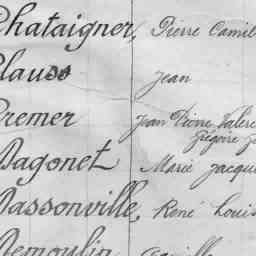 Chataigner, Pierre Camil
Clauss Jean
Cremer Jean Pierre Valère
Grégoire
Dagonet Marie Jacque
Dassonville, René Louis
Demoulin Camille